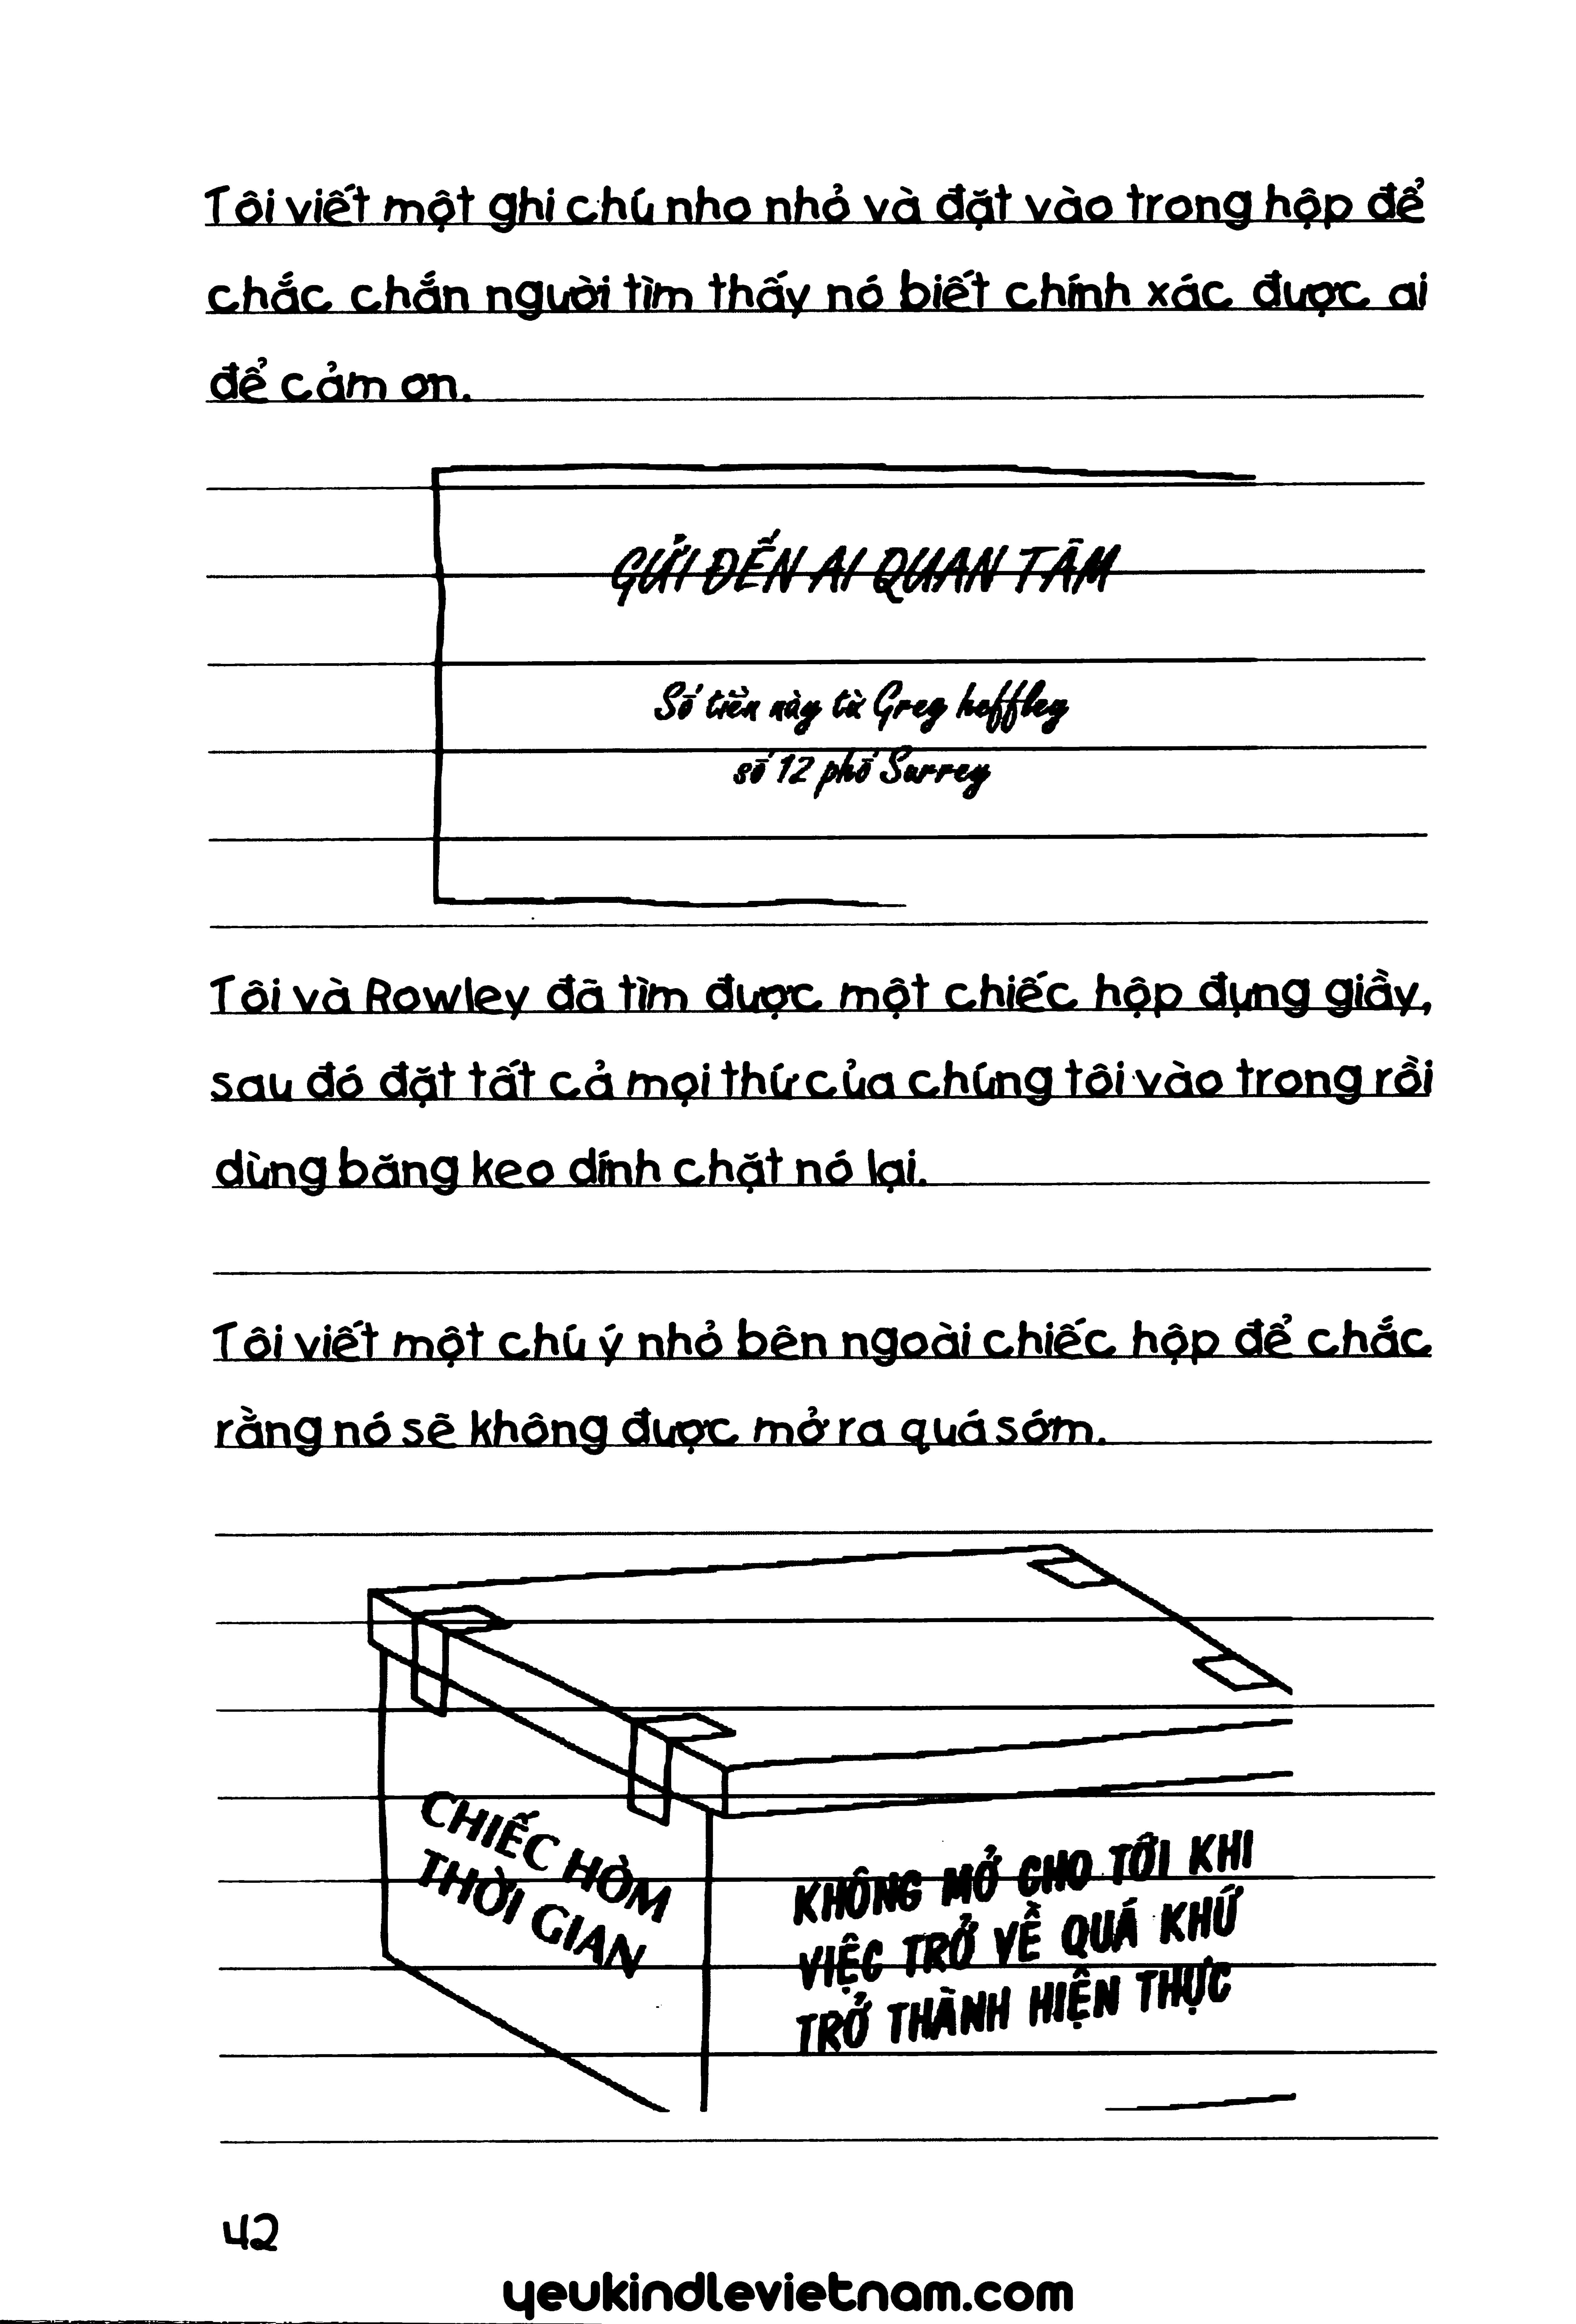 Tôi viết một ghi chú nho nhỏ và đặt vào trong hộp để
chắc chắn người tìm thấy nó biết chính xác được ai
để cảm ơn.
GỬI ĐẾN AI QUAN TÂM
Số tiền này từ Greg heffley
số 12 phố Surrey
Tôi và Rowley đã tìm được một chiếc hộp đựng giầy,
sau đó đặt tất cả mọi thứ của chúng tôi vào trong rồi
dùng băng keo dính chặt nó lại.
Tôi viết một chú ý nhỏ bên ngoài chiếc hộp để chắc
rằng nó sẽ không được mở ra quá sớm.
CHIẾC HÒM
THỜI GIAN
KHÔNG MỞ CHO TỚI KHI
VIỆC TRỞ VỀ QUÁ KHỨ
TRỞ THÀNH HIỆN THỰC
42
yeukindlevietnam.com